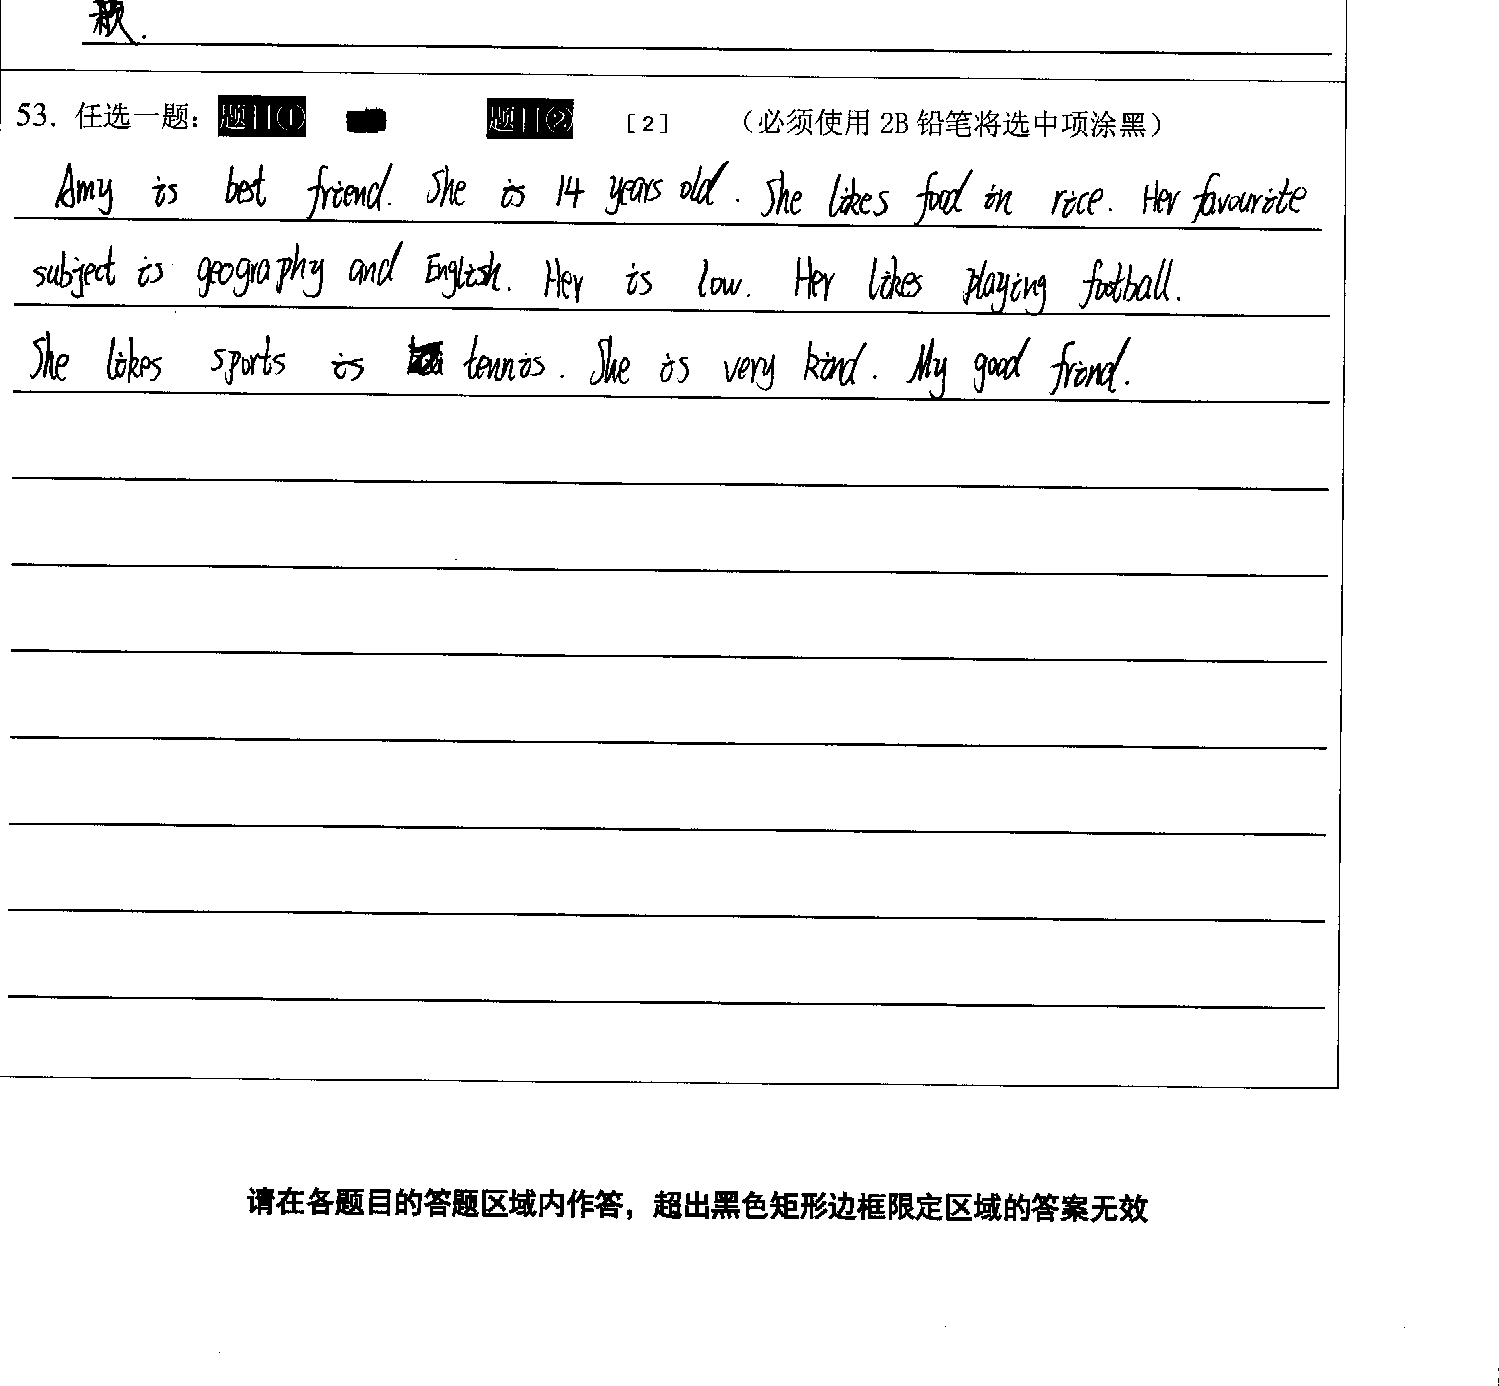 歉.
53. 任选一题： 题目① 题目② [2] （必须使用 2B 铅笔将选中项涂黑）
Amy is best friend. She is 14 years old. She likes food in rice. Her favourite
subject is geography and English. Her is low. Her likes playing football.
She likes sports is tennis. She is very kind. My good friend.
请在各题目的答题区域内作答，超出黑色矩形边框限定区域的答案无效